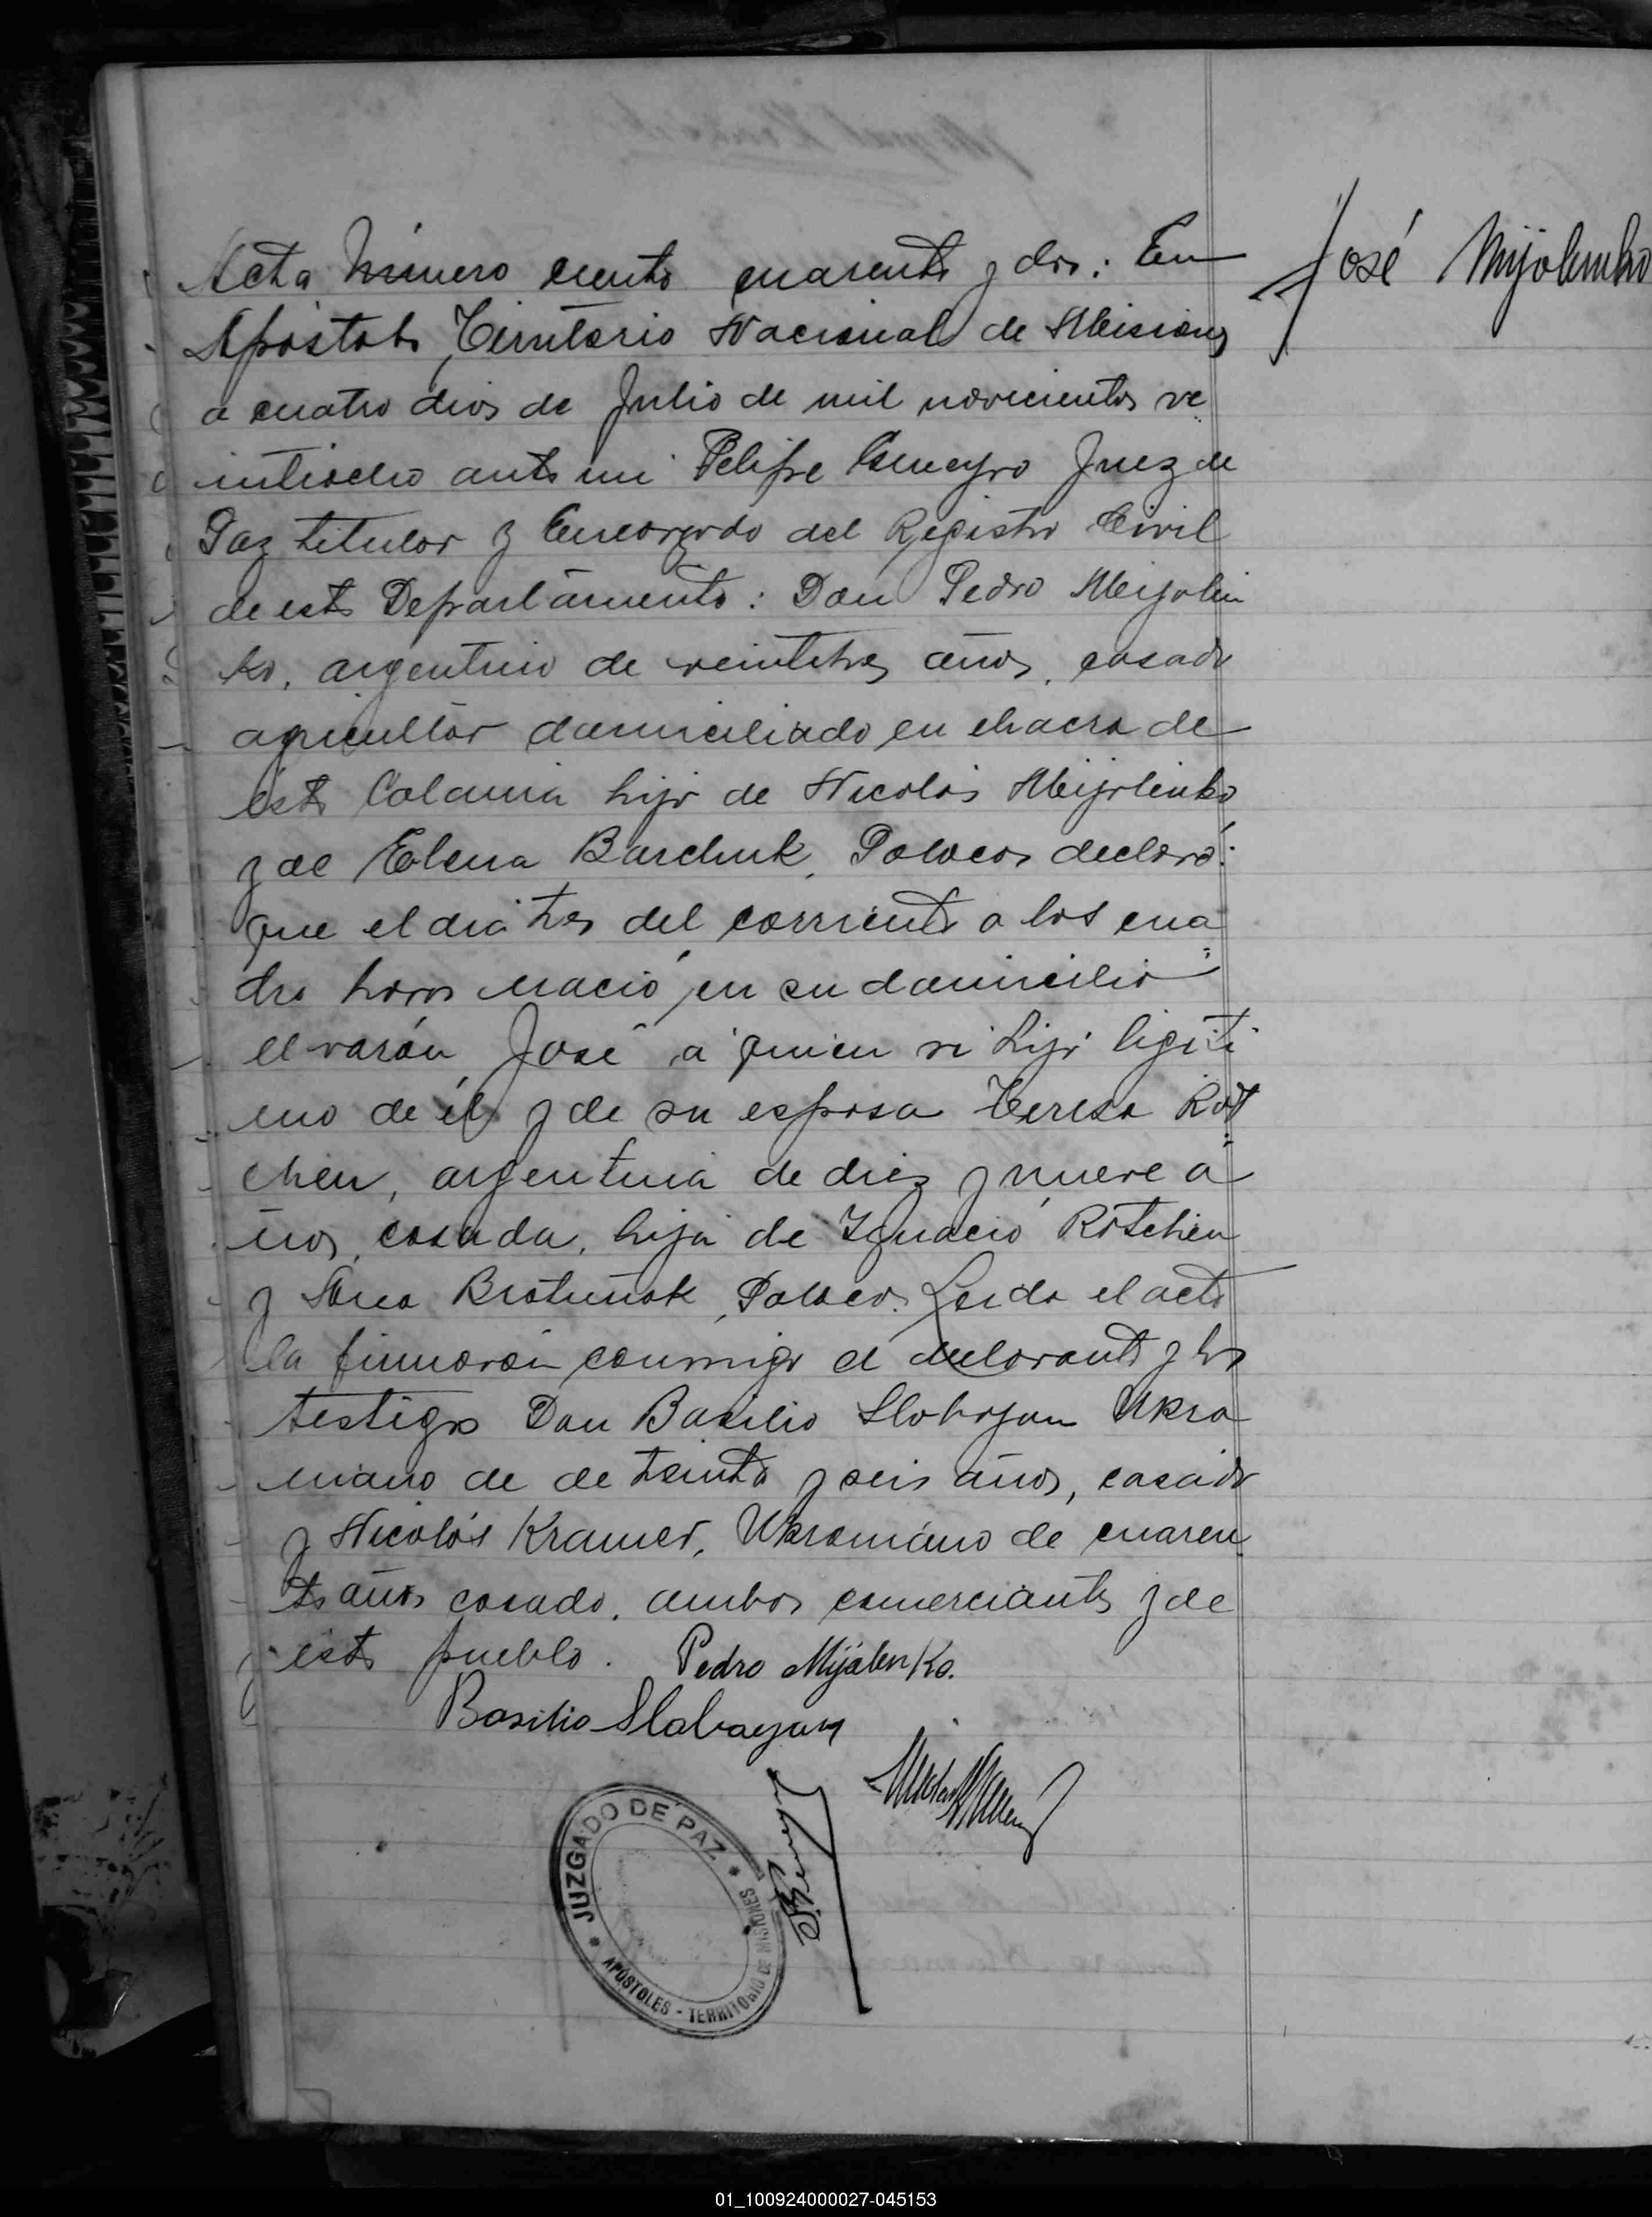 José Mijolenko
Acta Número ciento cuarenta y dos: En
Apóstoles Territorio Nacional de Misiones
a cuatro dias de Julio de mil novecientos ve
intiocho ante mi Felipe Juez de
Paz titular y Encargado del Registro Civil
de este Departamento: Don Pedro Mijolen
ko, argentino de veintitres años, casado
agricultor domiciliado en chacra de
esta Colonia hijo de Nicolás Mijolenko
y de Elena Barchuk, Polacos declaró:
que el dia tres del corriente a las cua
tro horas nació en su domicilio
el varón José a quien vi hijo legiti
mo de él y de su esposa Teresa Rot
chen, argentina de diez y nueve a
ños, casada, hija de Ignacio Rotchen
y Polacos. Leida el acta
la firmaron conmigo el declarante y los
testigos Don Basilio Slobayan Ukra
niano de de treinta y seis años, casado
y Nicolás Kramer, Ukraniano de cuaren
ta años casado, ambos comerciantes y de
este pueblo. Pedro Mijolenko.
Basilio Slobayan
JUZGADO DE PAZ
APÓSTOLES - TERRITORIO DE MISIONES
01_100924000027-045153